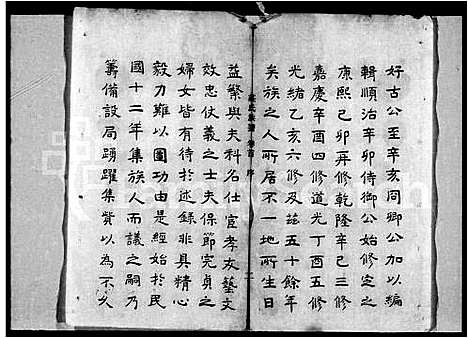 好古公至辛亥同卿公加以編
輯順治辛卯侍御公始修定之
康熙己卯再修乾隆辛巳三修
嘉慶辛酉四修道光丁酉五修
光緒乙亥六修及茲五十餘年
矣族之人所居不一地所生日
氏族譜 卷首 序
益繁與夫科名仕宦孝友藝文
效忠仗義之士夫保節完貞之
婦女皆有待於述錄非具精心
毅力難以圖功由是經始於民
國十二年集族人而議之嗣乃
籌備設局踴躍集貲以為不久